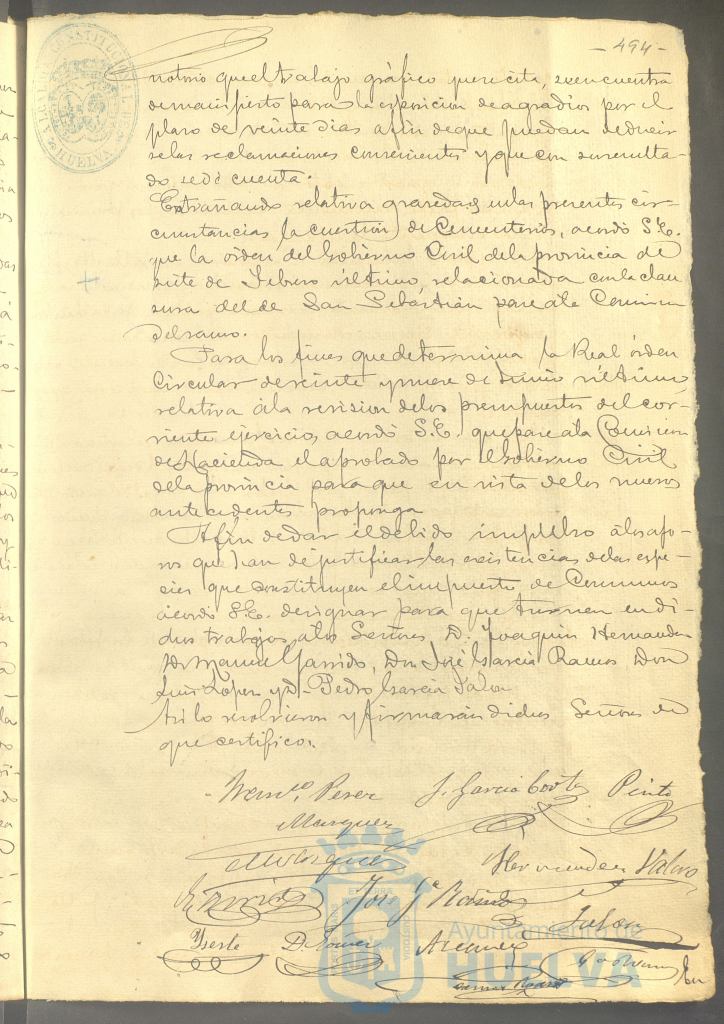 - 494 -
ALCALDIA CONSTITUCIONAL DE HUELVA
notorio que el trabajo gráfico que se cita, se encuentra
de manifiesto para la esposicion de agravios por el
plazo de veinte dias afin de que puedan deducir
se las reclamaciones convenientes y que con su resulta-
do, se dé cuenta.
Entrañando relativa gravedad, en las presentes cir-
cunstancias la cuestion de Cementerios, acordó S.E.
que la órden del Gobierno Civil de la provincia de
siete de Febrero último, relacionada con la clau
sura del de San Sebastián pase a la Comision
del ramo.
Para los fines que determina la Real órden
Circular de veinte y nueve de Junio último,
relativa á la revision de los presupuestos del cor-
riente ejercicio, acordó S.E. que pase a la Comision
de Hacienda el aprobado por el Gobierno Civil
de la provincia para que en vista de los nuevos
antecedentes proponga
Afin de dar el debido impulso á los afo-
ros que han de justificar las existencias de las espe-
cies que constituyen el impuesto de Consumos
acordó S.E. designar para que turnen en di-
chos trabajos, a los Señores, D. Joaquin Hernandez
D. Manuel Garrido, Don José Garcia Ramos, Don
Luis Lopez y D. Pedro Garcia Jalon
Asi lo resolvieron y firmarán dichos Señores de
que certifico.
Perez J. Garcia Cortes Pinto
Marquez
Hernandez Valero
José Gª Ramos Jalon
Yserte D. Gomez
Ayuntamiento de
HUELVA